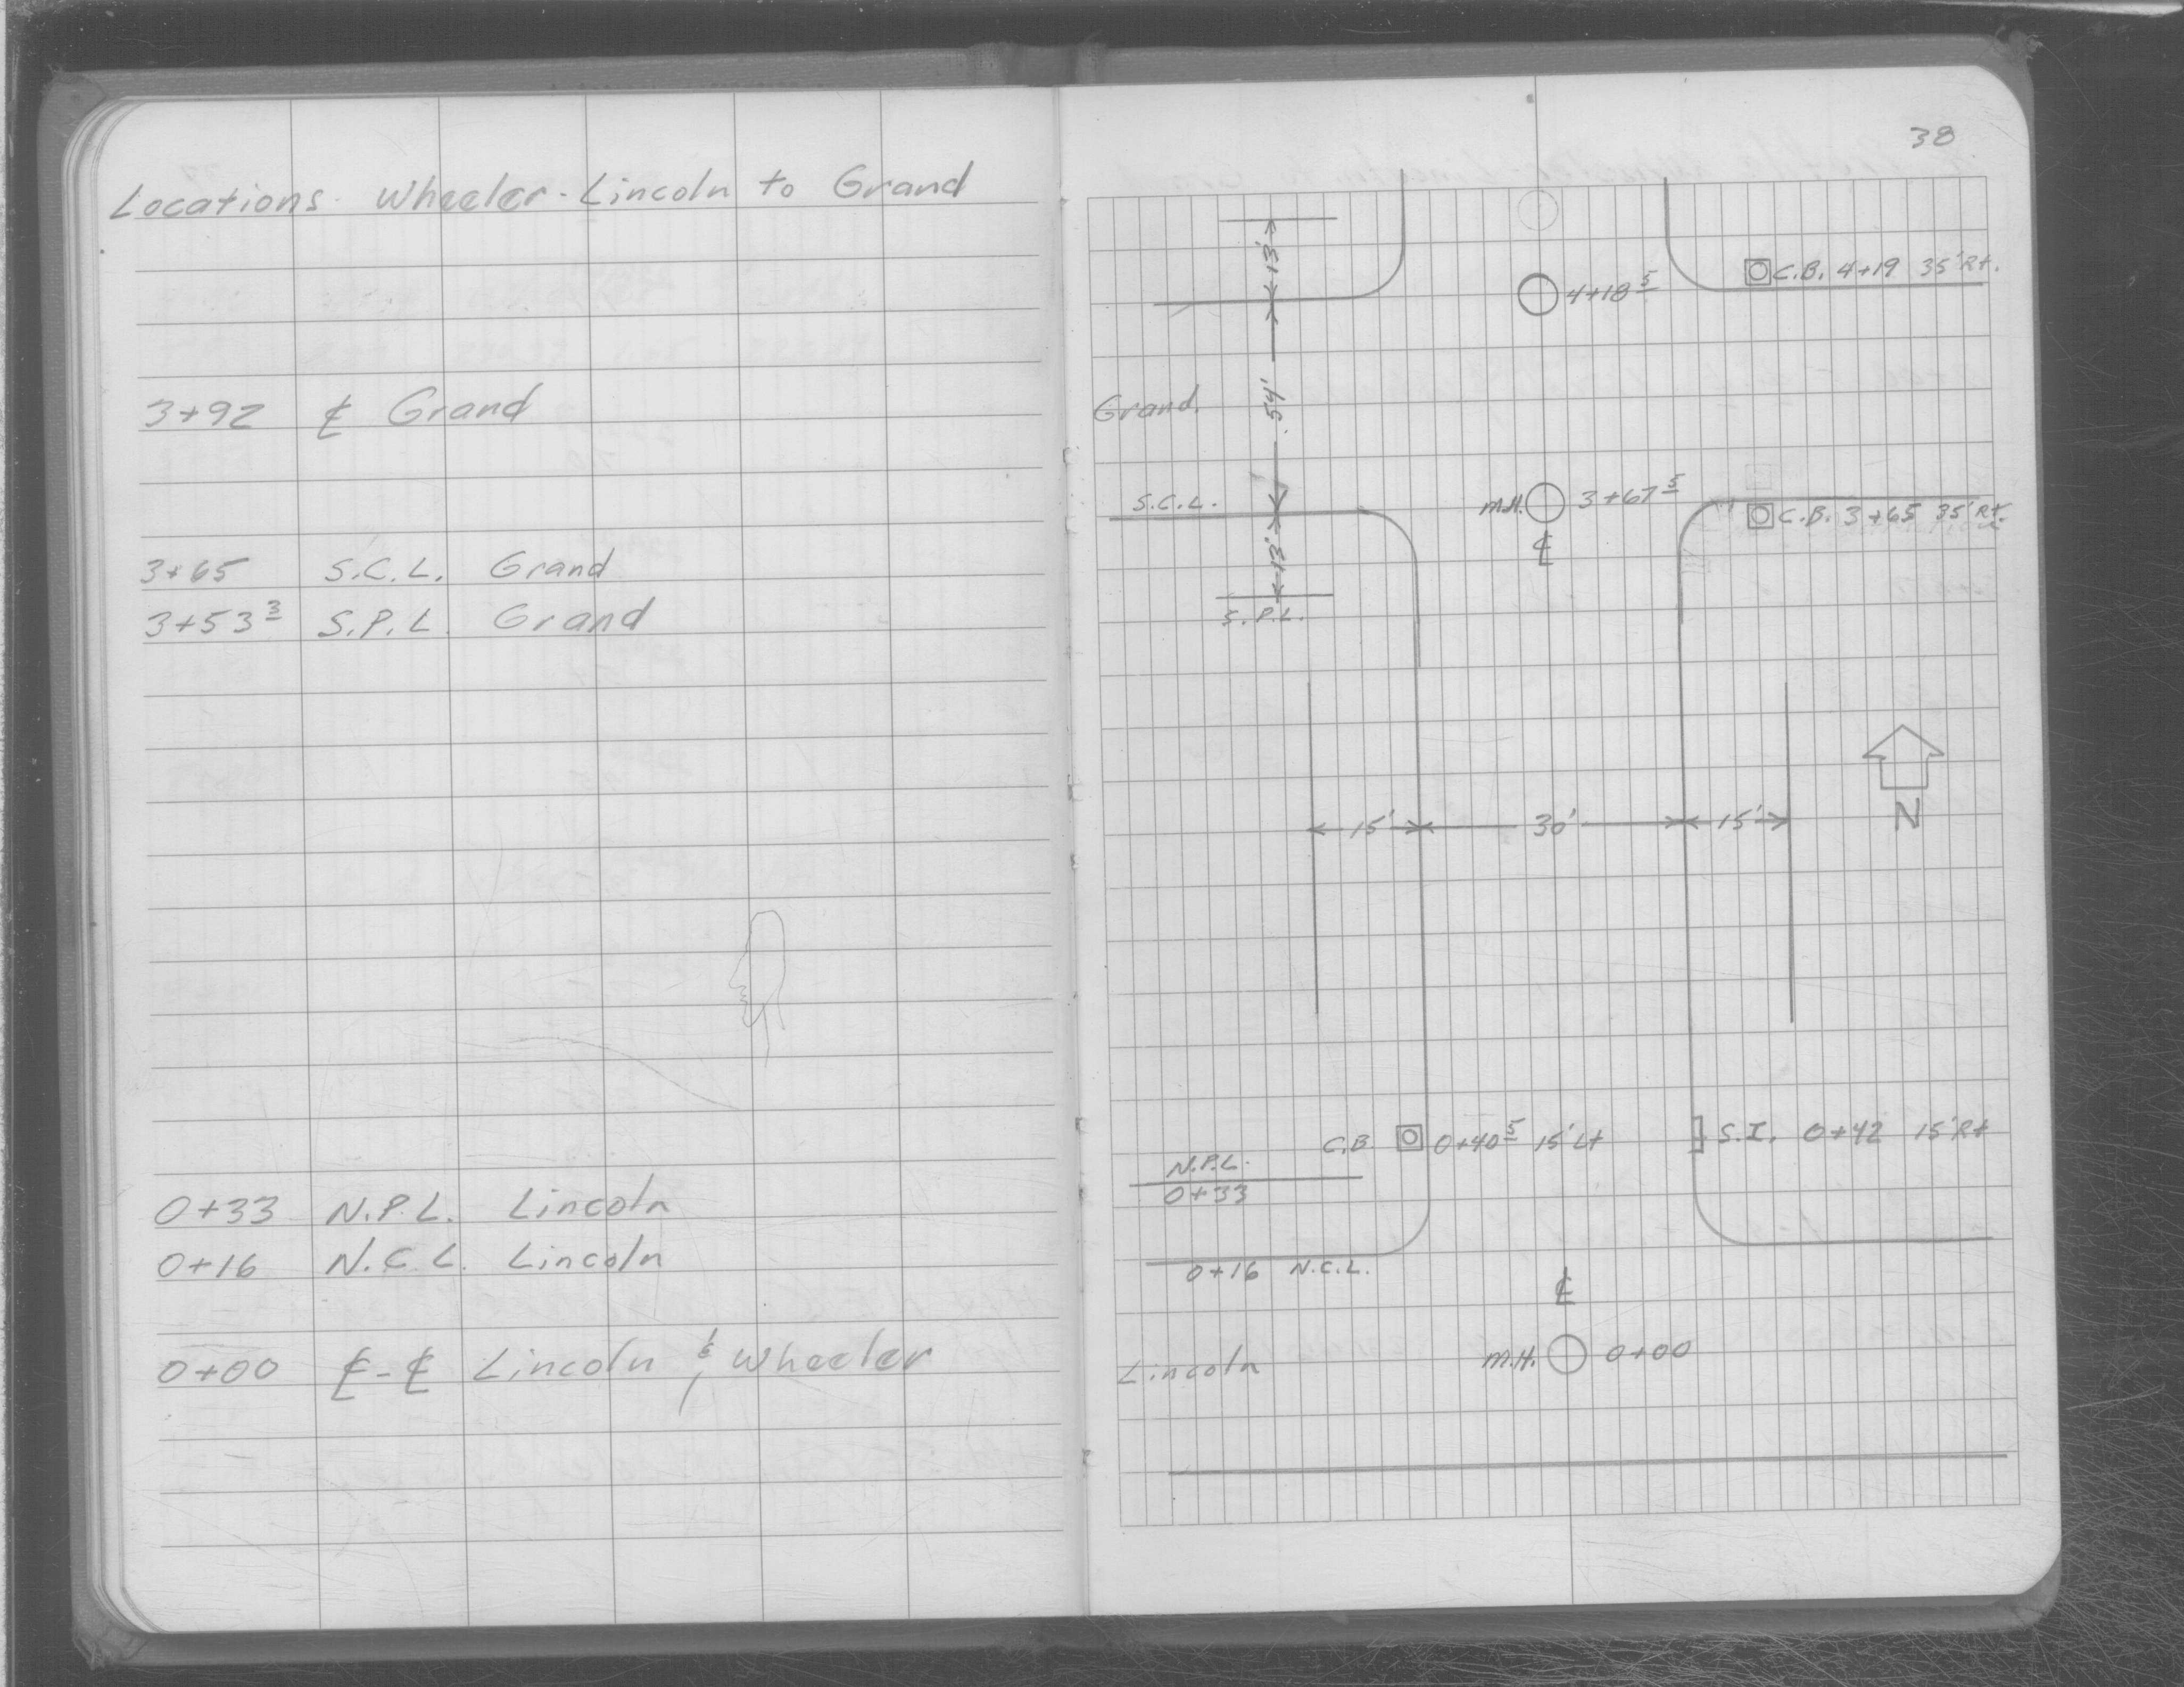 Locations - Wheeler - Lincoln to Grand
3+92 ℄ Grand
3+65 S.C.L. Grand
3+53 3 S.P.L. Grand
0+33 N.P.L. Lincoln
0+16 N.C.L. Lincoln
0+00 ℄-℄ Lincoln & Wheeler
38
13'
C.B. 4+19 35' Rt.
4+18 5
54'
Grand.
S.C.L.
M.H. 3+67 5
C.B. 3+65 35' Rt.
℄
S.P.L.
15' 30' 15'
N
C.B. 0+40 5 15' Lt
S.I. 0+42 15' Rt
N.P.L.
0+33
0+16 N.C.L.
℄
Lincoln
M.H. 0+00